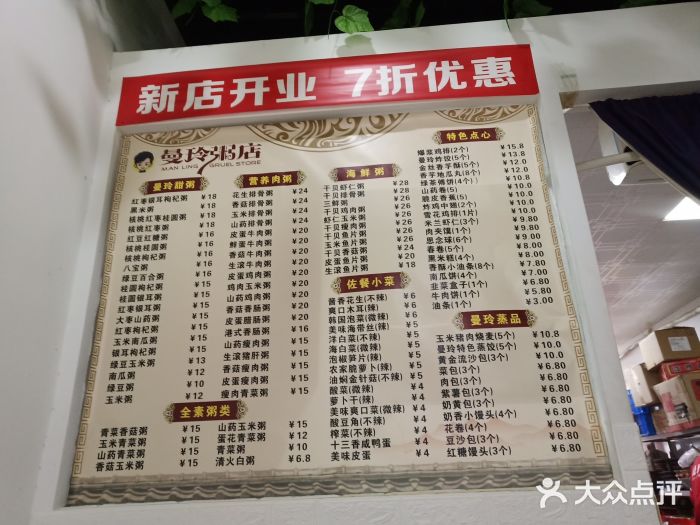 新店开业 7折优惠
曼玲粥店
MAN LING GRUEL STORE
曼玲甜粥
红枣银耳枸杞粥 ¥18
黑米粥 ¥18
核桃红枣桂圆粥
核桃红枣粥
红豆红糖粥
核桃桂圆粥
八宝粥
绿豆百合粥
桂圆枸杞粥
桂圆银耳粥
红枣银耳粥
大枣山药粥
红枣枸杞粥
玉米南瓜粥
银耳枸杞粥
绿豆玉米粥
南瓜粥
绿豆粥
玉米粥
营养肉粥
花生排骨粥 ¥24
香菇排骨粥 ¥24
玉米排骨粥 ¥24
山药排骨粥 ¥24
皮蛋牛肉粥 ¥20
鲜蛋牛肉粥 ¥20
香菇牛肉粥 ¥20
生滚牛肉粥 ¥20
皮蛋鸡肉粥 ¥20
鸡肉玉米粥 ¥20
山药鸡肉粥 ¥20
香菇鸡肉粥 ¥20
皮蛋腊肠粥
港式香肠粥
山药瘦肉粥
生滚猪肝粥
香菇瘦肉粥
皮蛋瘦肉粥
瘦肉青菜粥 ¥15
海鲜粥
干贝虾仁粥 ¥28
干贝排骨粥 ¥28
三鲜粥
干贝鸡肉粥
虾仁玉米粥
干贝瘦肉粥
干贝鱼片粥
玉米鱼片粥
干贝香菇粥
皮蛋鱼片粥
生滚鱼片粥
佐餐小菜
酱香花生(不辣) ¥6
爽口木耳(辣) ¥6
韩国泡菜(微辣)
美味海带丝(辣)
洋白菜(不辣)
海白菜(微辣)
泡椒笋片(辣)
农家脆萝卜(辣)
油焖金针菇(不辣)
酸菜(微辣)
萝卜干(辣)
美味爽口菜(微辣)
酸豆角(不辣)
榨菜(不辣)
十三香咸鸭蛋 ¥4
美味皮蛋 ¥4
特色点心
爆浆鸡排(2个) ¥15.8
曼玲炸饺(5个) ¥13.8
金丝香芋酥(5个)
香芋地瓜丸(8个)
绿茶佛饼(4个)
山药卷(5)
脆皮香蕉(5)
炸鸡中翅(2个)
雪花鸡排(1片)
米兰虾仁(3个)
肉夹馍(1个)
思念球(6个)
春卷(5个)
黑米糕(4个)
香酥小油条(8个)
南瓜饼(4个)
韭菜盒子(1个)
牛肉饼(1个)
油条(1个) ¥3.00
曼玲蒸品
玉米猪肉烧麦(5个) ¥10.8
曼玲特色蒸饺(5个) ¥10.0
黄金流沙包(3个) ¥10.0
菜包(3个) ¥6.80
肉包(3个) ¥6.80
紫薯包(3个) ¥6.80
奶黄包(3个) ¥6.80
奶香小馒头(4个) ¥6.80
花卷(4个) ¥6.80
豆沙包(3个) ¥6.80
红糖馒头(3个) ¥6.80
全素粥类
青菜香菇粥 ¥15
玉米青菜粥 ¥15
山药青菜粥 ¥15
香菇玉米粥 ¥15
山药玉米粥 ¥15
蛋花青菜粥 ¥12
青菜粥 ¥10
清火白粥 ¥6.8
大众点评